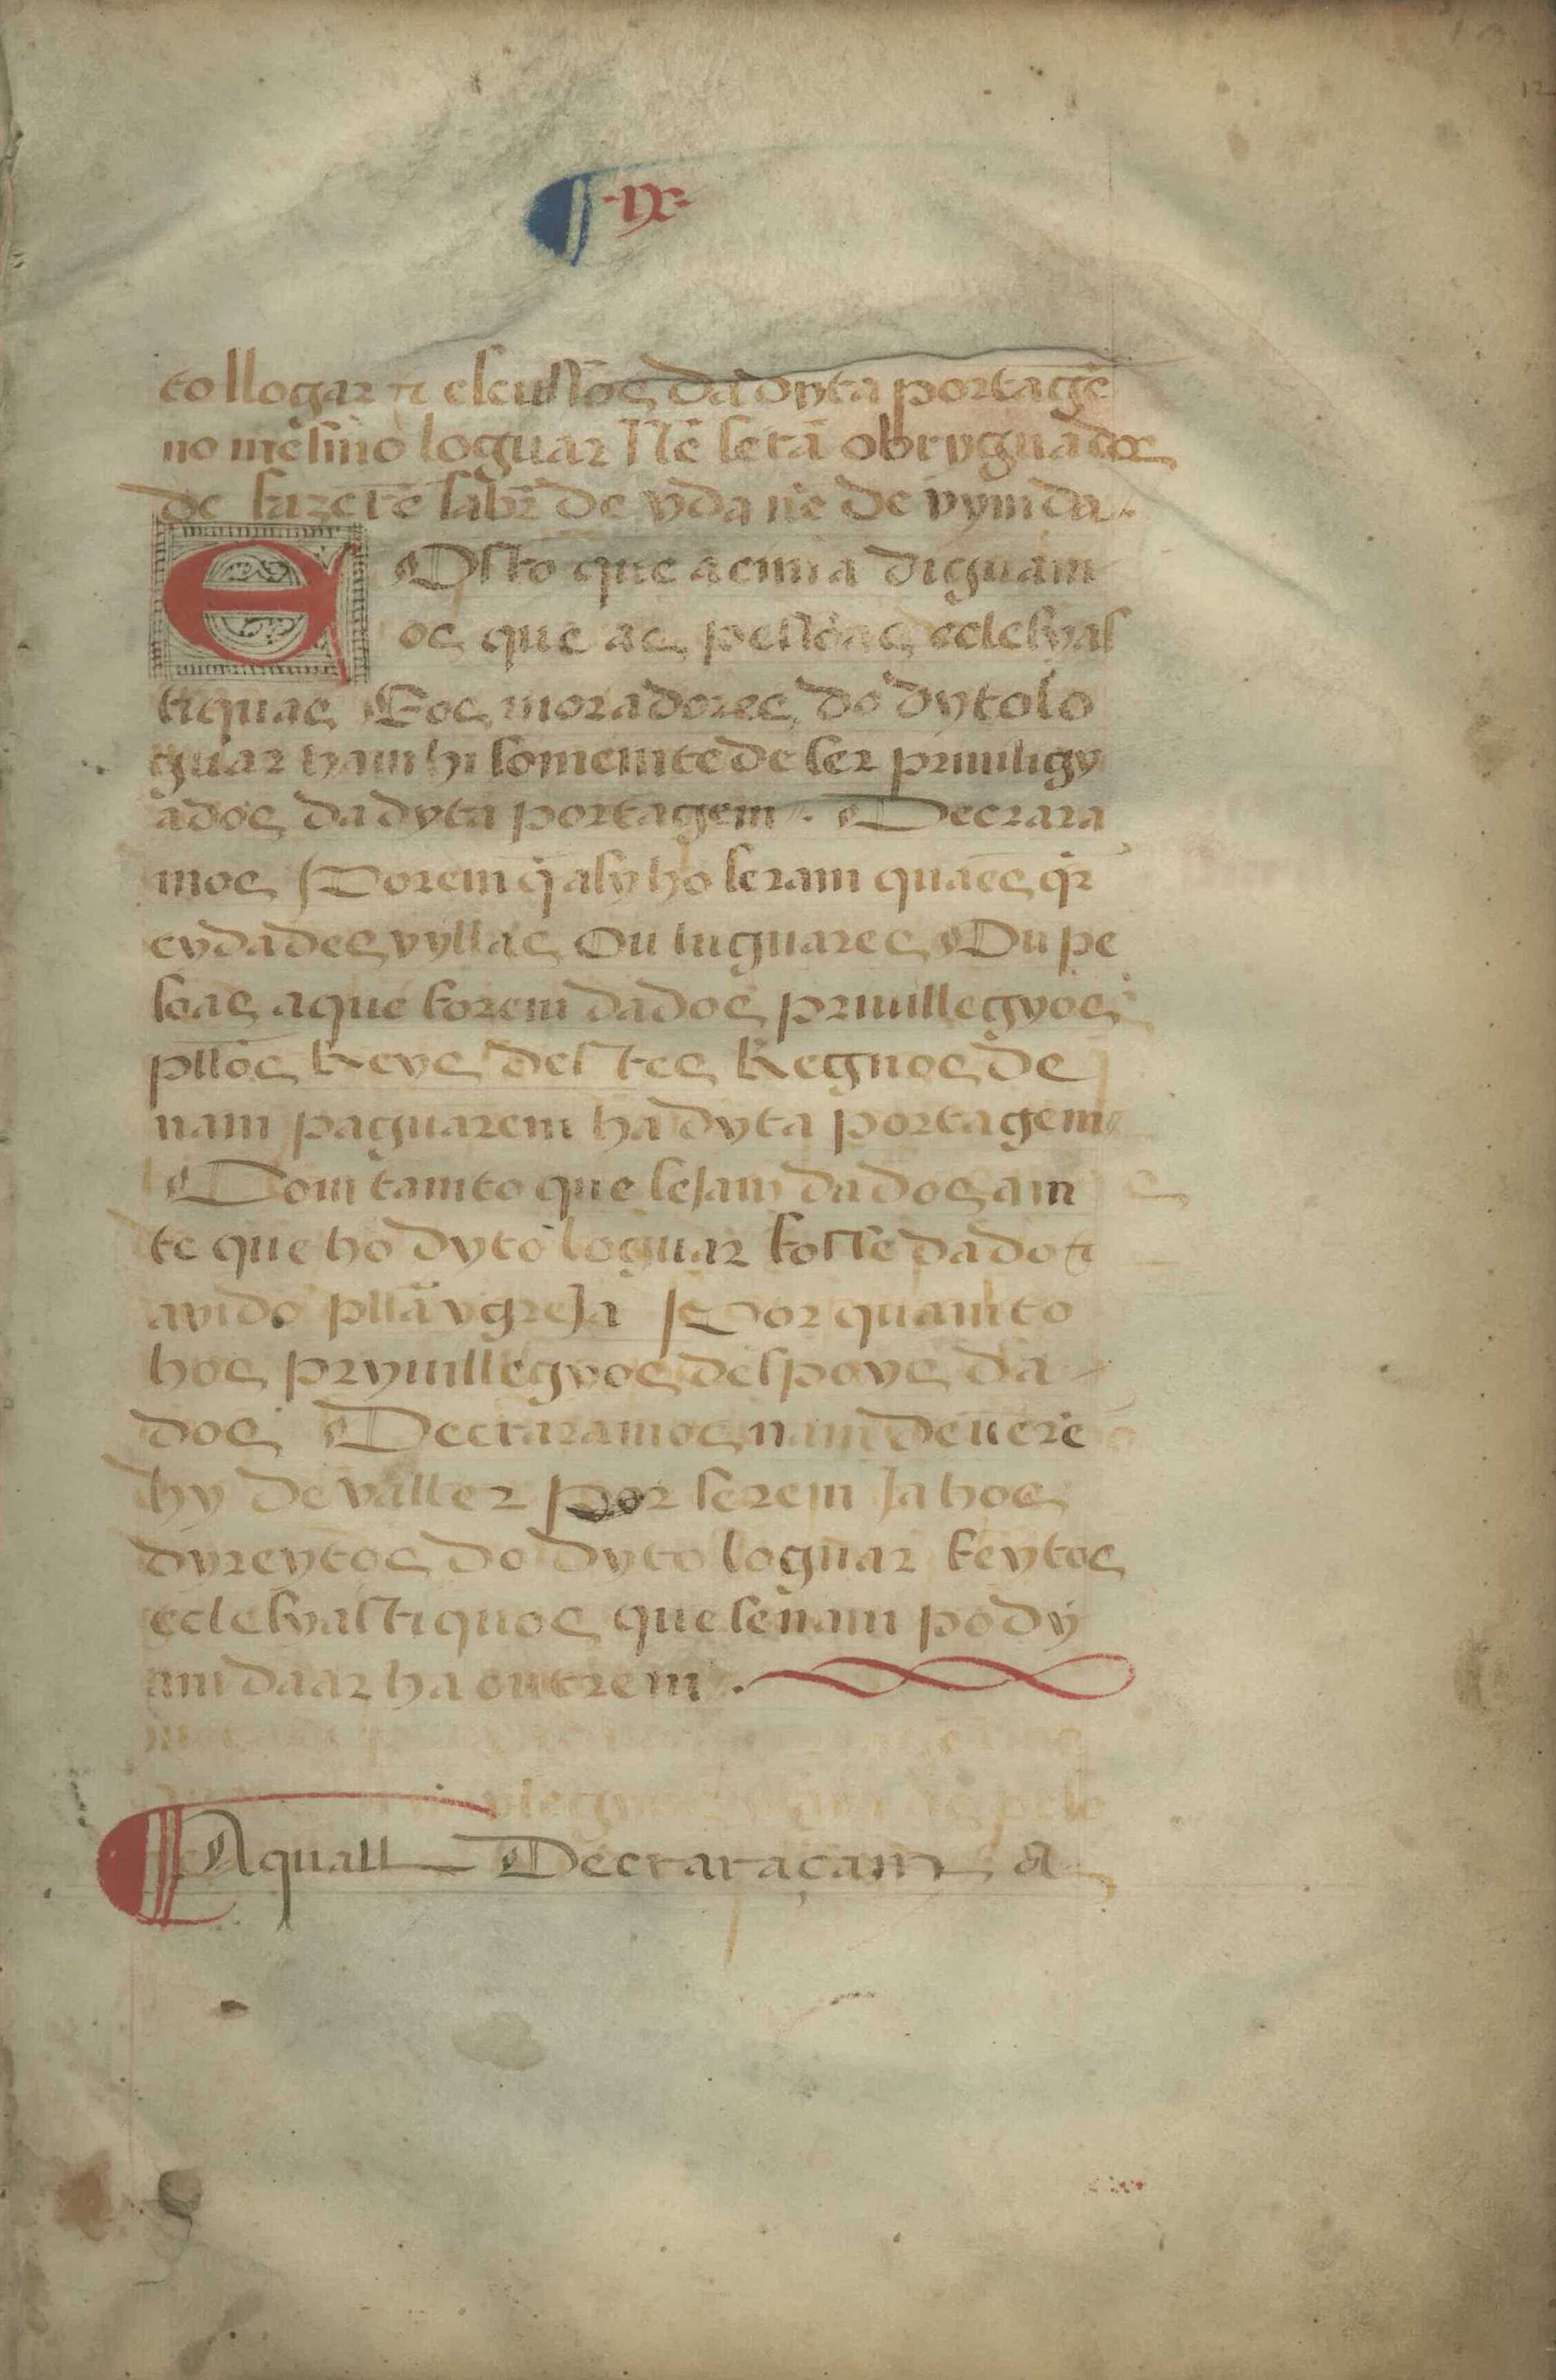 ¶ ·ix·
to llogar ⁊ escussos da dyta portagẽ
no mesmo loguar Nẽ serã obryguados
de fazerẽ saber de yda nẽ de vymda.
E Posto que acima diguam
os que as pessoas eclesyas
tiquas E os moradores do dyto lo
guar ham hi somemte de ser priuiligy
ados da dyta portagem. Decrara
mos Porem q̃ asy ho seram quaes q̃r
cydades vyllas Ou luguares Ou pe
soas a que forem dados priuillegyos
pllos Reys destes Regnos de
nam paguarem ha dyta portagem
Com tamto que sejam dados am
te que ho dyto loguar fosse dado ⁊
avido plla ygreja Por quamto
hos pryuillegyos despoys da
dos Decraramos nam deuerẽ
hy de valler por serem ja hos
dyreytos do dyto loguar feytos
eclesyastiquos que se nam pody
am daar ha outrem.
¶ Aquall Decraraçam a